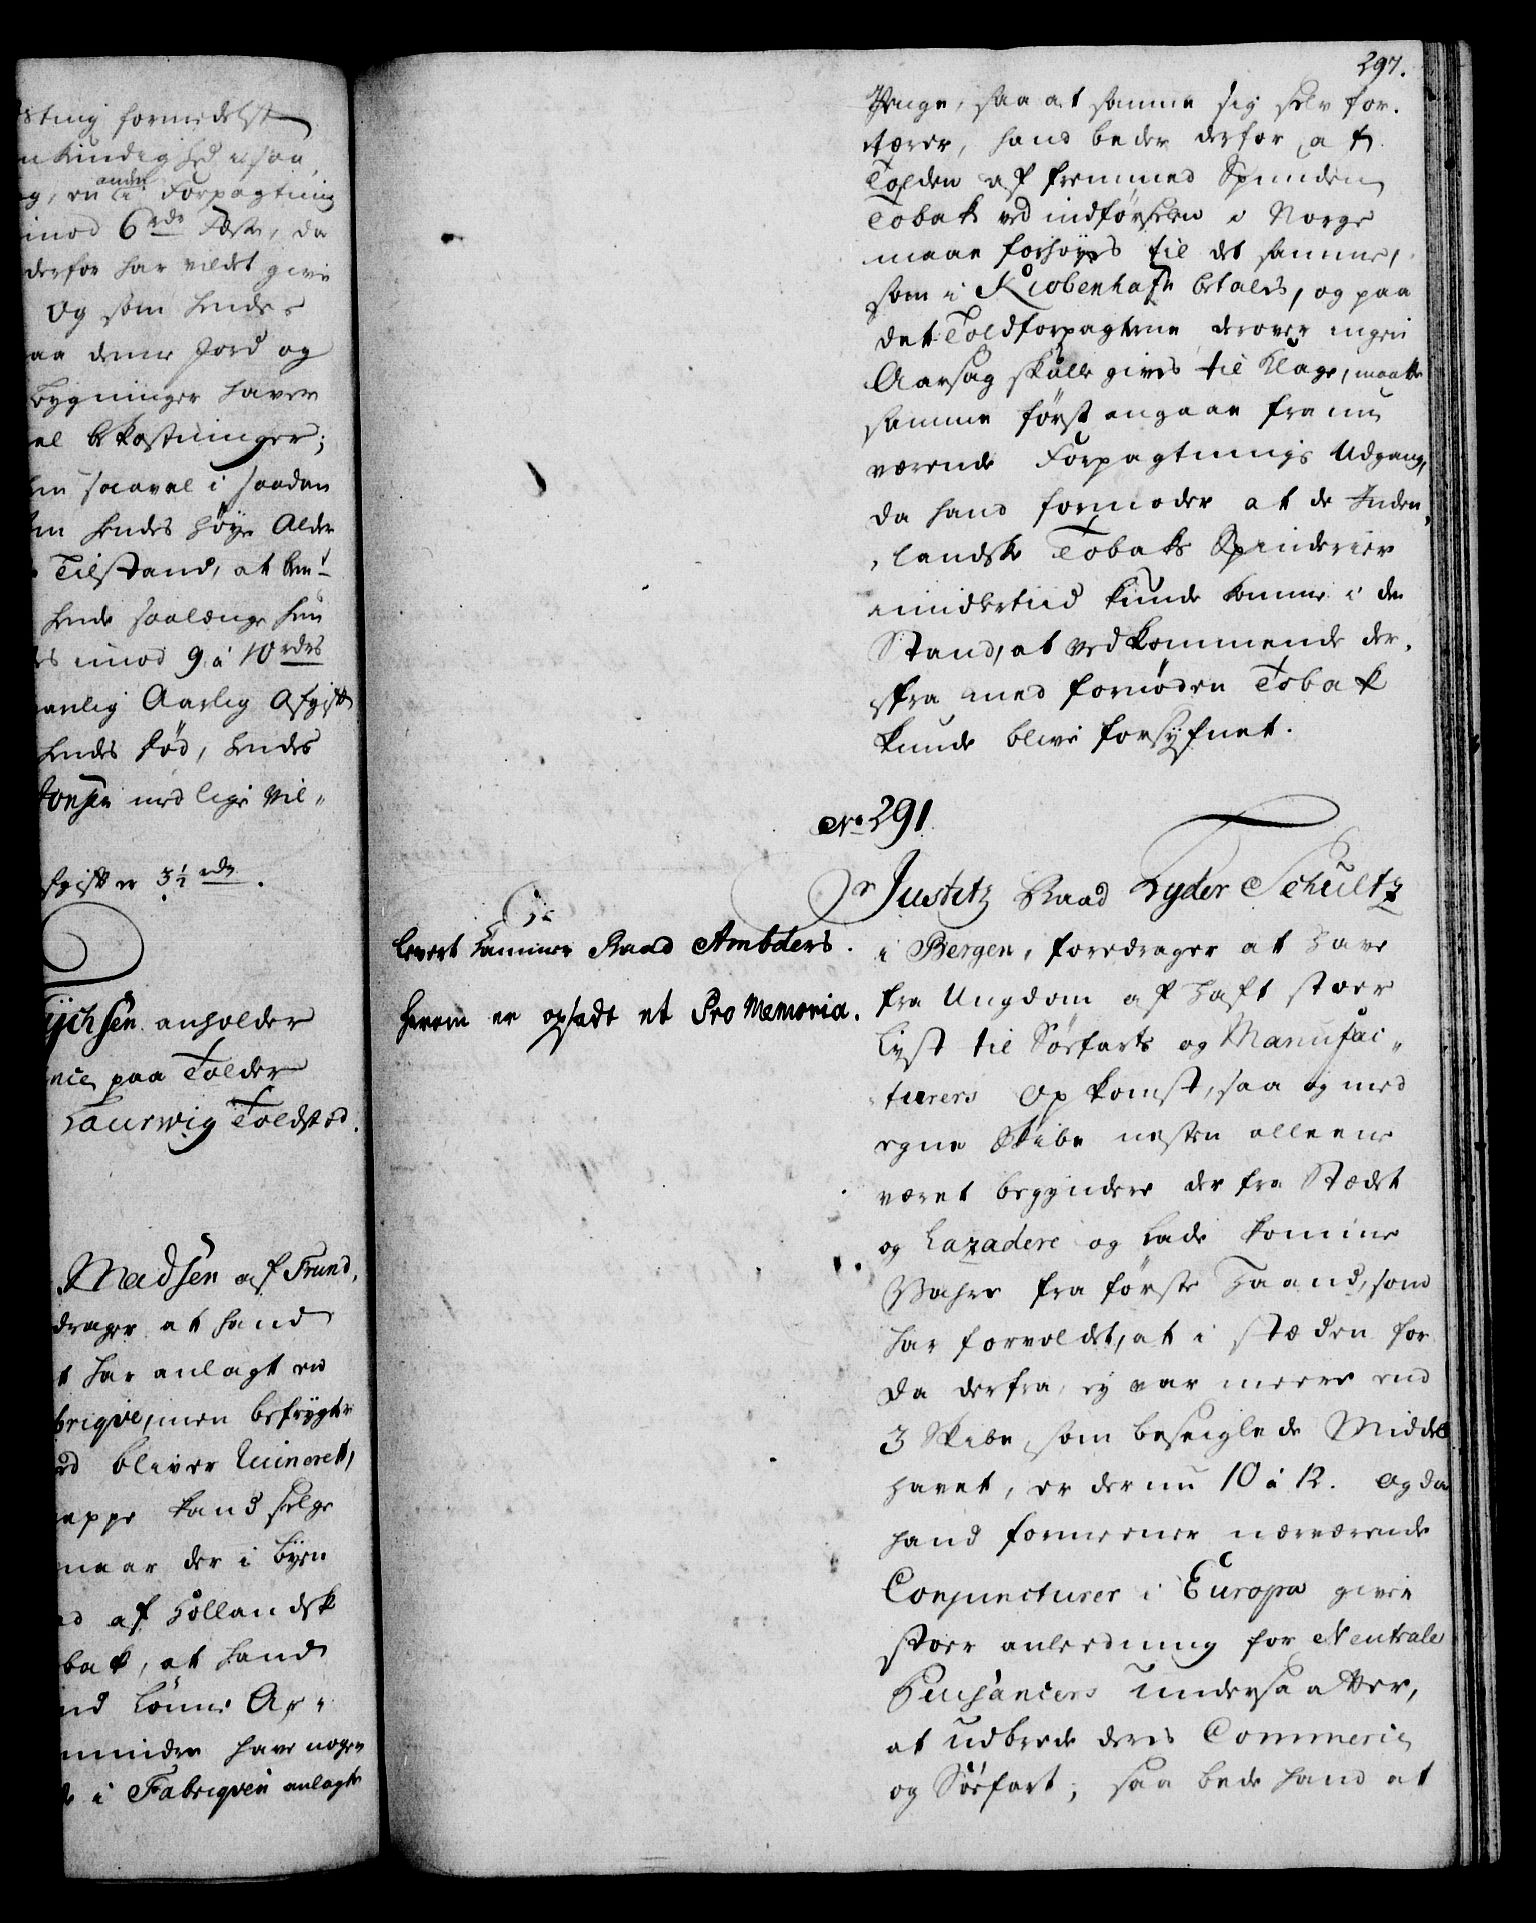 sting formedelst
nkindighed ug saa
g, en anden i Forpagtning
imod 6 rdr Fæste, da
derfor har villet give
Og som hendes
aa denne Jord og
bygninger haver
el bekostninger;
en saavel i saadan
en hendes høye Alder
Tilstand, at
hende saalænge hun
es imod 9 á 10 rdrs
anlig Aarlig Afgift
hendes død, hendes
Jonsen med lige Vil„
fgift er 3½ rdr.
Tÿchsen anholder
nce paa Tolder
Laurwig Toldsted.
Madsen af Trund,
drager at hand
t har anlagt en
brique, men befrygter
ed bliver Ruineret,
neppe kand selge
naar der i byen
ed af Hollandsk
bak, at hand
nd lønne Ar„
mindre have nogen
de i Fabriqven anlagte
297.
Penge, saa at samme sig selv for„
tærer, hand beder derfor, at
Tolden af fremmed Spunden
Tobak ved indførselen i Norge
maae forhøyes til det samme,
som i Kiobenhafn betales, og paa
det Toldforpagterne derover ingen
Aarsag skulle gives til Klage, maatte
samme først angaae fra nu
værende Forpagtnings Udgang,
da hand formoder at de Inden„
„landske Tobaks Spinderier
imidlertiid kunde komme i den
Stand, at vedkommende der„
fra med fornøden Tobak
kunde blive forsÿfnet.
No. 291.
Hr Justitz Raad Lyder Schultz
i Bergen, foredrager at have
fra Ungdom af haft stoer
Lyst til Søefarts og Manufac„
„turers Opkomst, saa og med
egne Skibe nesten alleene
været begyndere der fra Stædet
og Lazadere og lade komme
Vahre fra første Haand, som
har forvoldet, at i stæden for
da derfra, ey var meere end
3 Skibe, som beseiglede Middel
havet, er der nu 10 á 12. Og da
hand formeener nærværende
Conjuncturer i Europa given
stoer anledning for Neutrale
Puissancers Undersaatter,
at udbrede deres Commercie
og Søefart; saa bede hand at
levert Cammer Raad Ambders.
herom er opsadt et Pro Memoria.